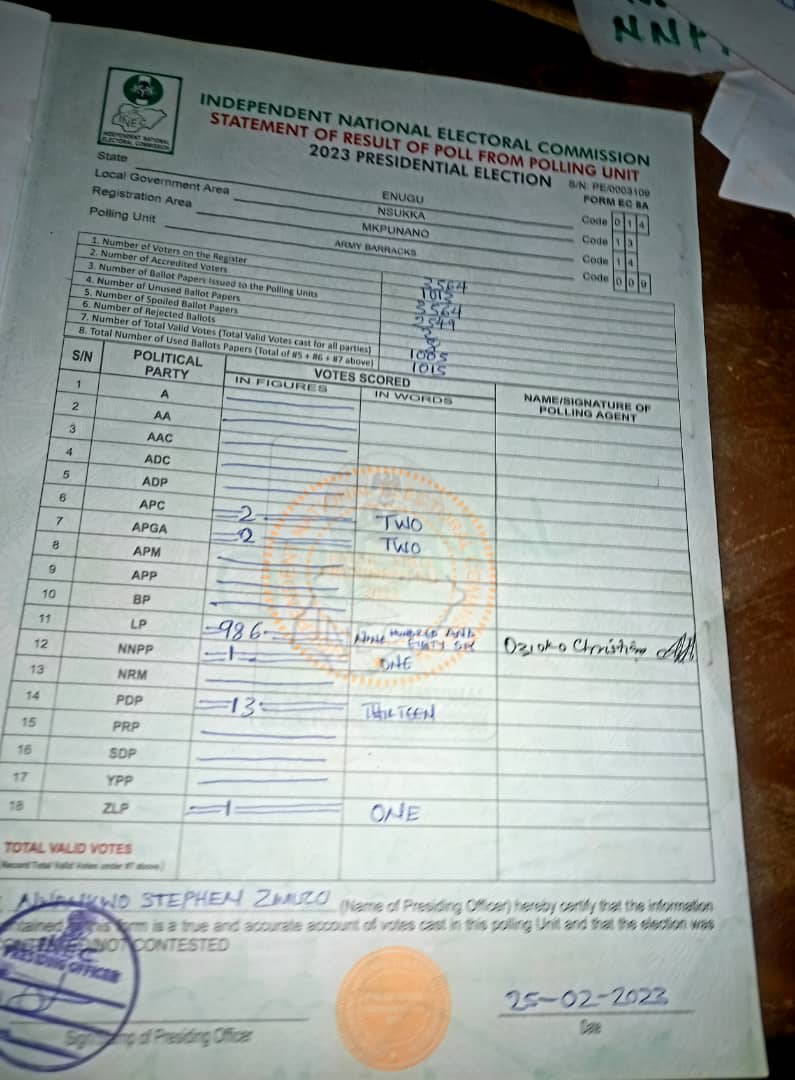 NNP
INEC
INDEPENDENT NATIONAL
ELECTORAL COMMISSION
INDEPENDENT NATIONAL ELECTORAL COMMISSION
STATEMENT OF RESULT OF POLL FROM POLLING UNIT
2023 PRESIDENTIAL ELECTION
S/N: PE/0003109
FORM EC 8A
State ENUGU Code 0 1 4
Local Government Area NSUKKA Code 1 3
Registration Area MKPUNANO Code 1 4
Polling Unit ARMY BARRACKS Code 0 0 9
1. Number of Voters on the Register 3564
2. Number of Accredited Voters 1015
3. Number of Ballot Papers Issued to the Polling Units 3564
4. Number of Unused Ballot Papers 2549
5. Number of Spoiled Ballot Papers
6. Number of Rejected Ballots
7. Number of Total Valid Votes (Total Valid Votes cast for all parties) 1005
8. Total Number of Used Ballots Papers (Total of #5 + #6 + #7 above) 1015
S/N POLITICAL PARTY VOTES SCORED NAME/SIGNATURE OF POLLING AGENT
IN FIGURES IN WORDS
1 A
2 AA
3 AAC
4 ADC
5 ADP
6 APC 2 TWO
7 APGA 2 TWO
8 APM
9 APP
10 BP
11 LP 986 NINE HUNDRED AND EIGTY SIX Ozioko Christian
12 NNPP 1 ONE
13 NRM
14 PDP 13 THIRTEEN
15 PRP
16 SDP
17 YPP
18 ZLP 1 ONE
TOTAL VALID VOTES
(Record Total Valid Votes under #7 above)
STEPHEN (Name of Presiding Officer) hereby certify that the information
contained this form is a true and accurate account of votes cast in this polling Unit and that the election was
NOT CONTESTED
PRESIDING OFFICER
25-02-2023
of Presiding Officer
Date